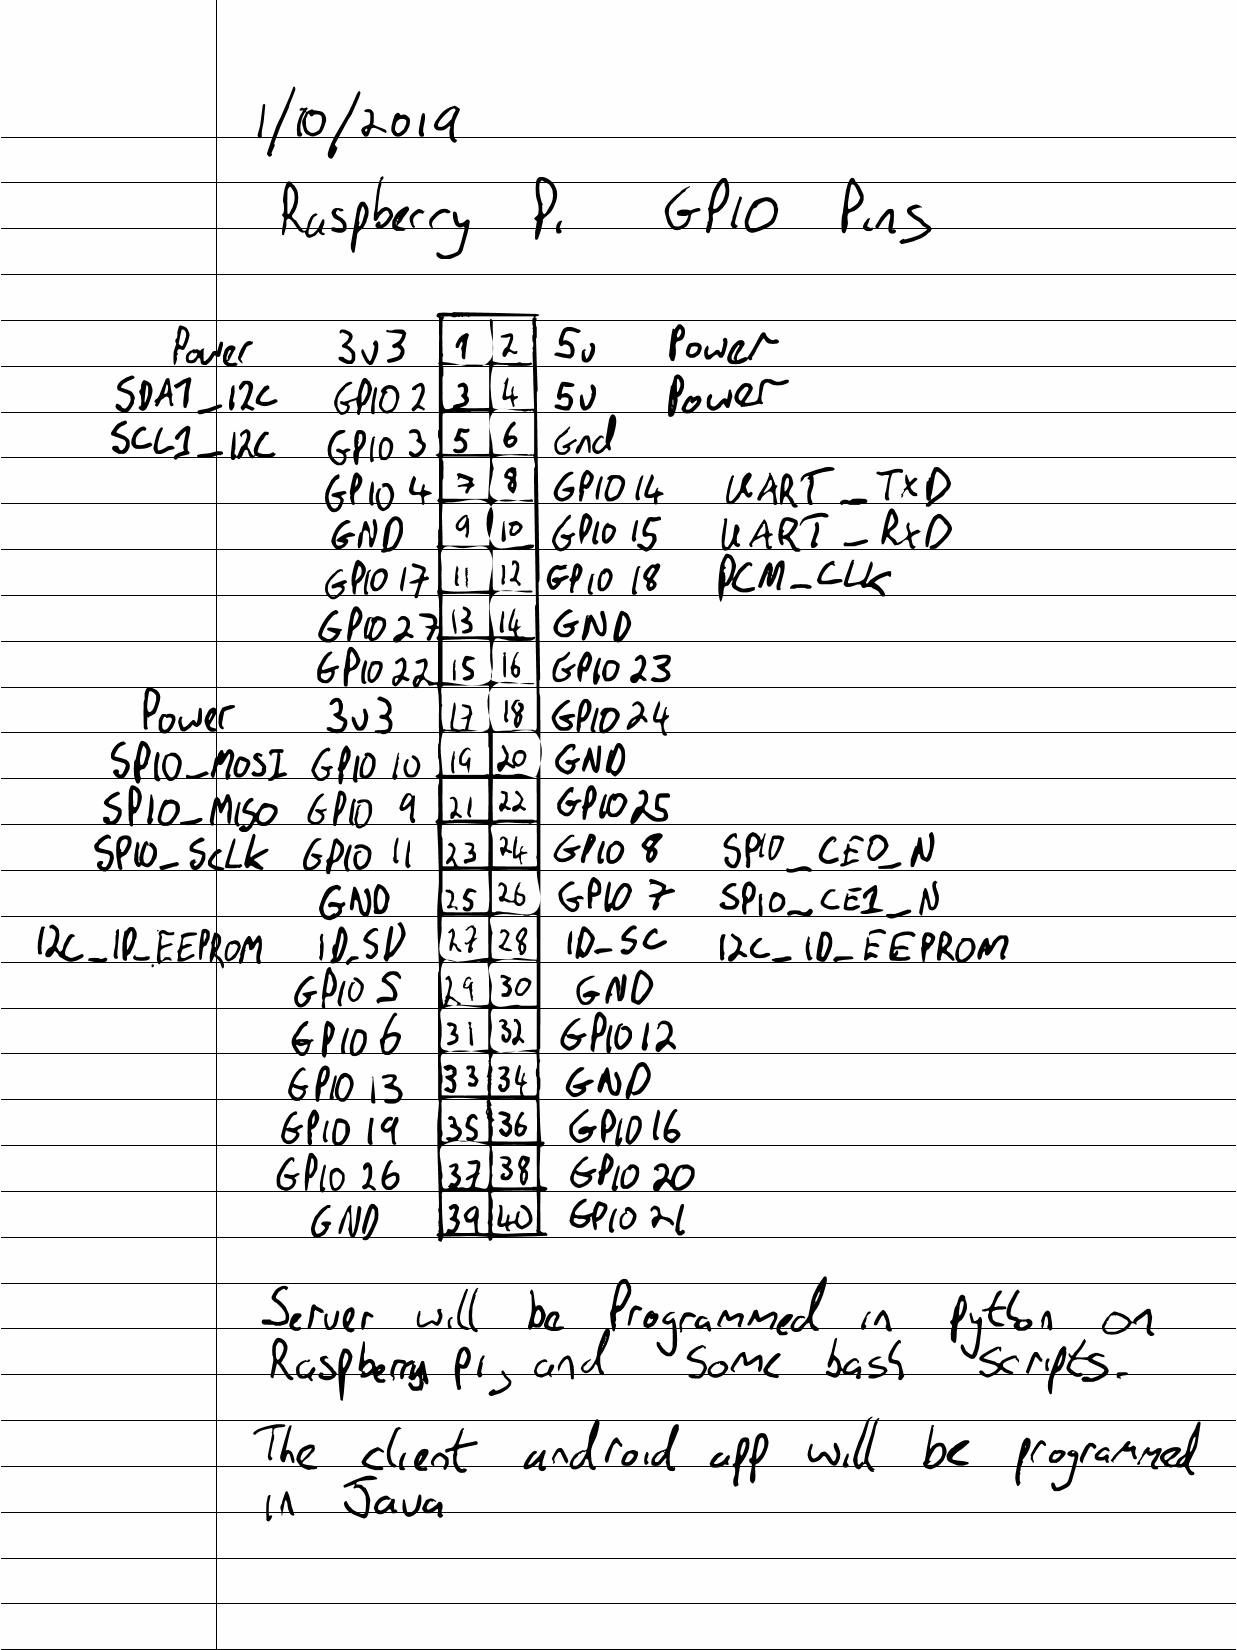 1/10/2019
Raspberry Pi GPIO Pins
Power 3v3 1 2 5v Power
SDA1_I2C GPIO 2 3 4 5v Power
SCL1_I2C GPIO 3 5 6 Gnd
GPIO 4 7 8 GPIO 14 UART_TXD
GND 9 10 GPIO 15 UART_RXD
GPIO 17 11 12 GPIO 18 PCM_CLK
GPIO 27 13 14 GND
GPIO 22 15 16 GPIO 23
Power 3v3 17 18 GPIO 24
SPI0_MOSI GPIO 10 19 20 GND
SPI0_MISO GPIO 9 21 22 GPIO 25
SPI0_SCLK GPIO 11 23 24 GPIO 8 SPI0_CE0_N
GND 25 26 GPIO 7 SPI0_CE1_N
I2C_ID_EEPROM ID_SD 27 28 ID_SC I2C_ID_EEPROM
GPIO 5 29 30 GND
GPIO 6 31 32 GPIO 12
GPIO 13 33 34 GND
GPIO 19 35 36 GPIO 16
GPIO 26 37 38 GPIO 20
GND 39 40 GPIO 21
Server will be Programmed in python on
Raspberry pi, and some bash scripts.
The client android app will be programmed
in Java